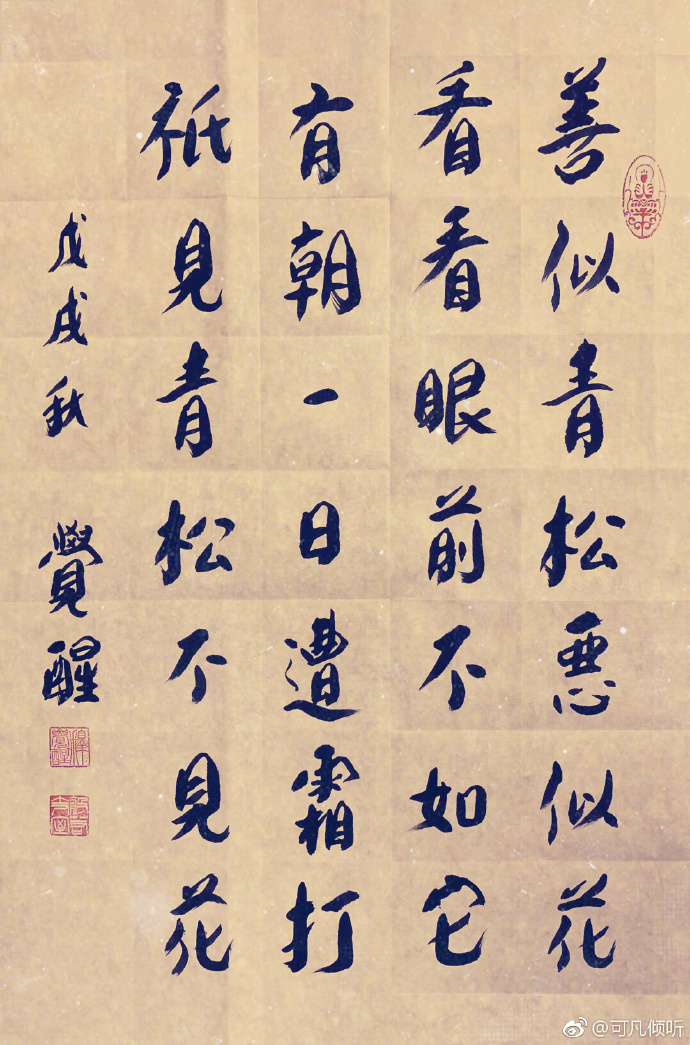 善似青松惡似花
看看眼前不如它
有朝一日遭霜打
祇見青松不見花
戊戌秋
覺醒
@可凡倾听